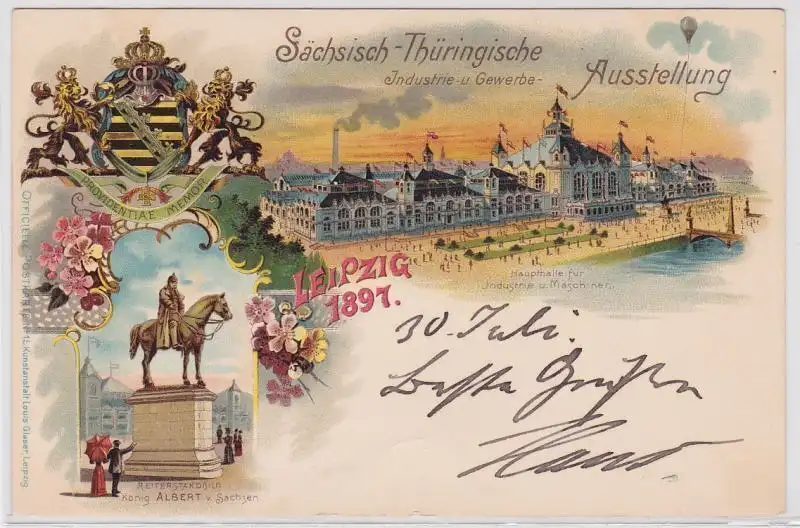 Sächsisch-Thüringische
Industrie- u. Gewerbe-
Ausstellung
PROVIDENTIAE MEMOR
Haupthalle für
Industrie u. Maschinen.
LEIPZIG
1897.
30. Juli.
Beste Grüße
Hans
REITERSTANDBILD
König ALBERT v. Sachsen.
Kunstanstalt Louis Glaser, Leipzig.